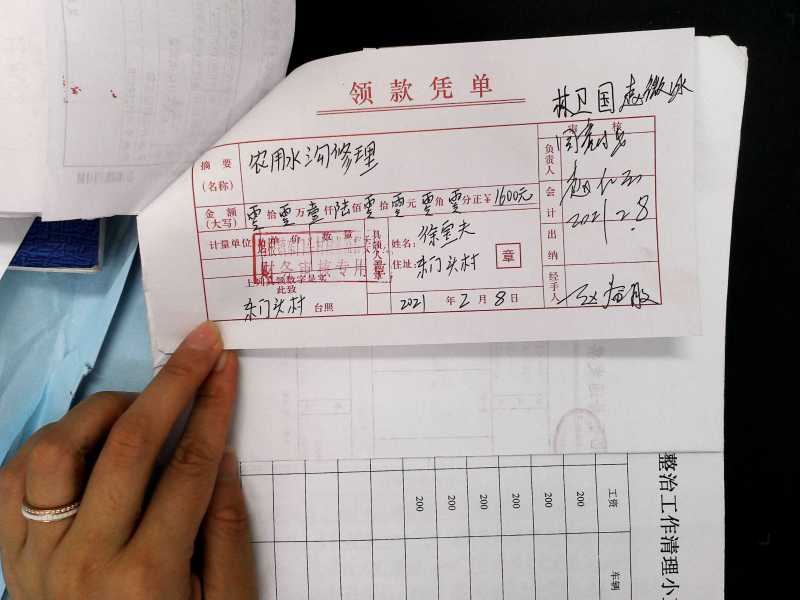 领款凭单
林卫国
审核
摘要
(名称)
农用水沟修理
负责人
金额
(大写)
零拾零万壹仟陆佰零拾零元零角零分正¥1600元
会计
2021 2.8
计量单位
单价
数量
具领人盖章
姓名:
徐
住址:
东门头村
章
财务审核专用
上列具领数字是实
此致
出纳
经手人
东门头村 台照
2021 年 2 月 8 日
整治工作清理小
工资
200
200
200
200
200
200
车辆